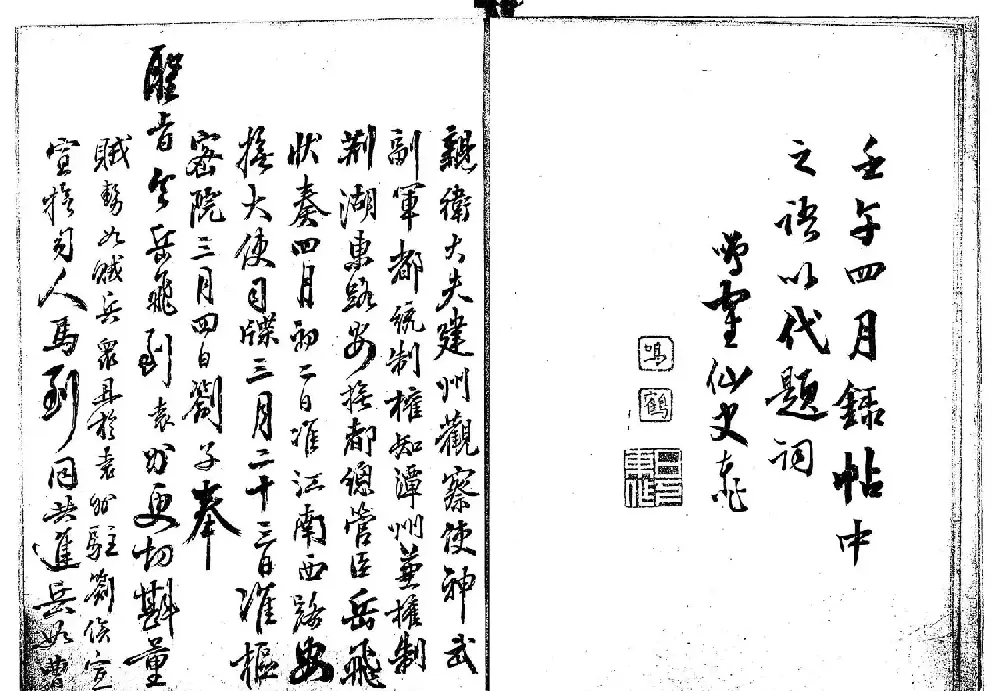 壬午四月録帖中
之語以代題詞
靈仙史
鳴
鶴
親衛大夫建州觀察使神武
副軍都統制權知潭州兼權制
荆湖東路安撫都總管臣岳飛
狀奏四月初二日准江南西路安
撫大使司牒三月二十三日准樞
密院三月四日劄子奉
聖旨令岳飛到袁州更切斟量
賊勢如賊兵衆且於袁州駐劄俟宣
宣撫司人馬到同共進兵如曹